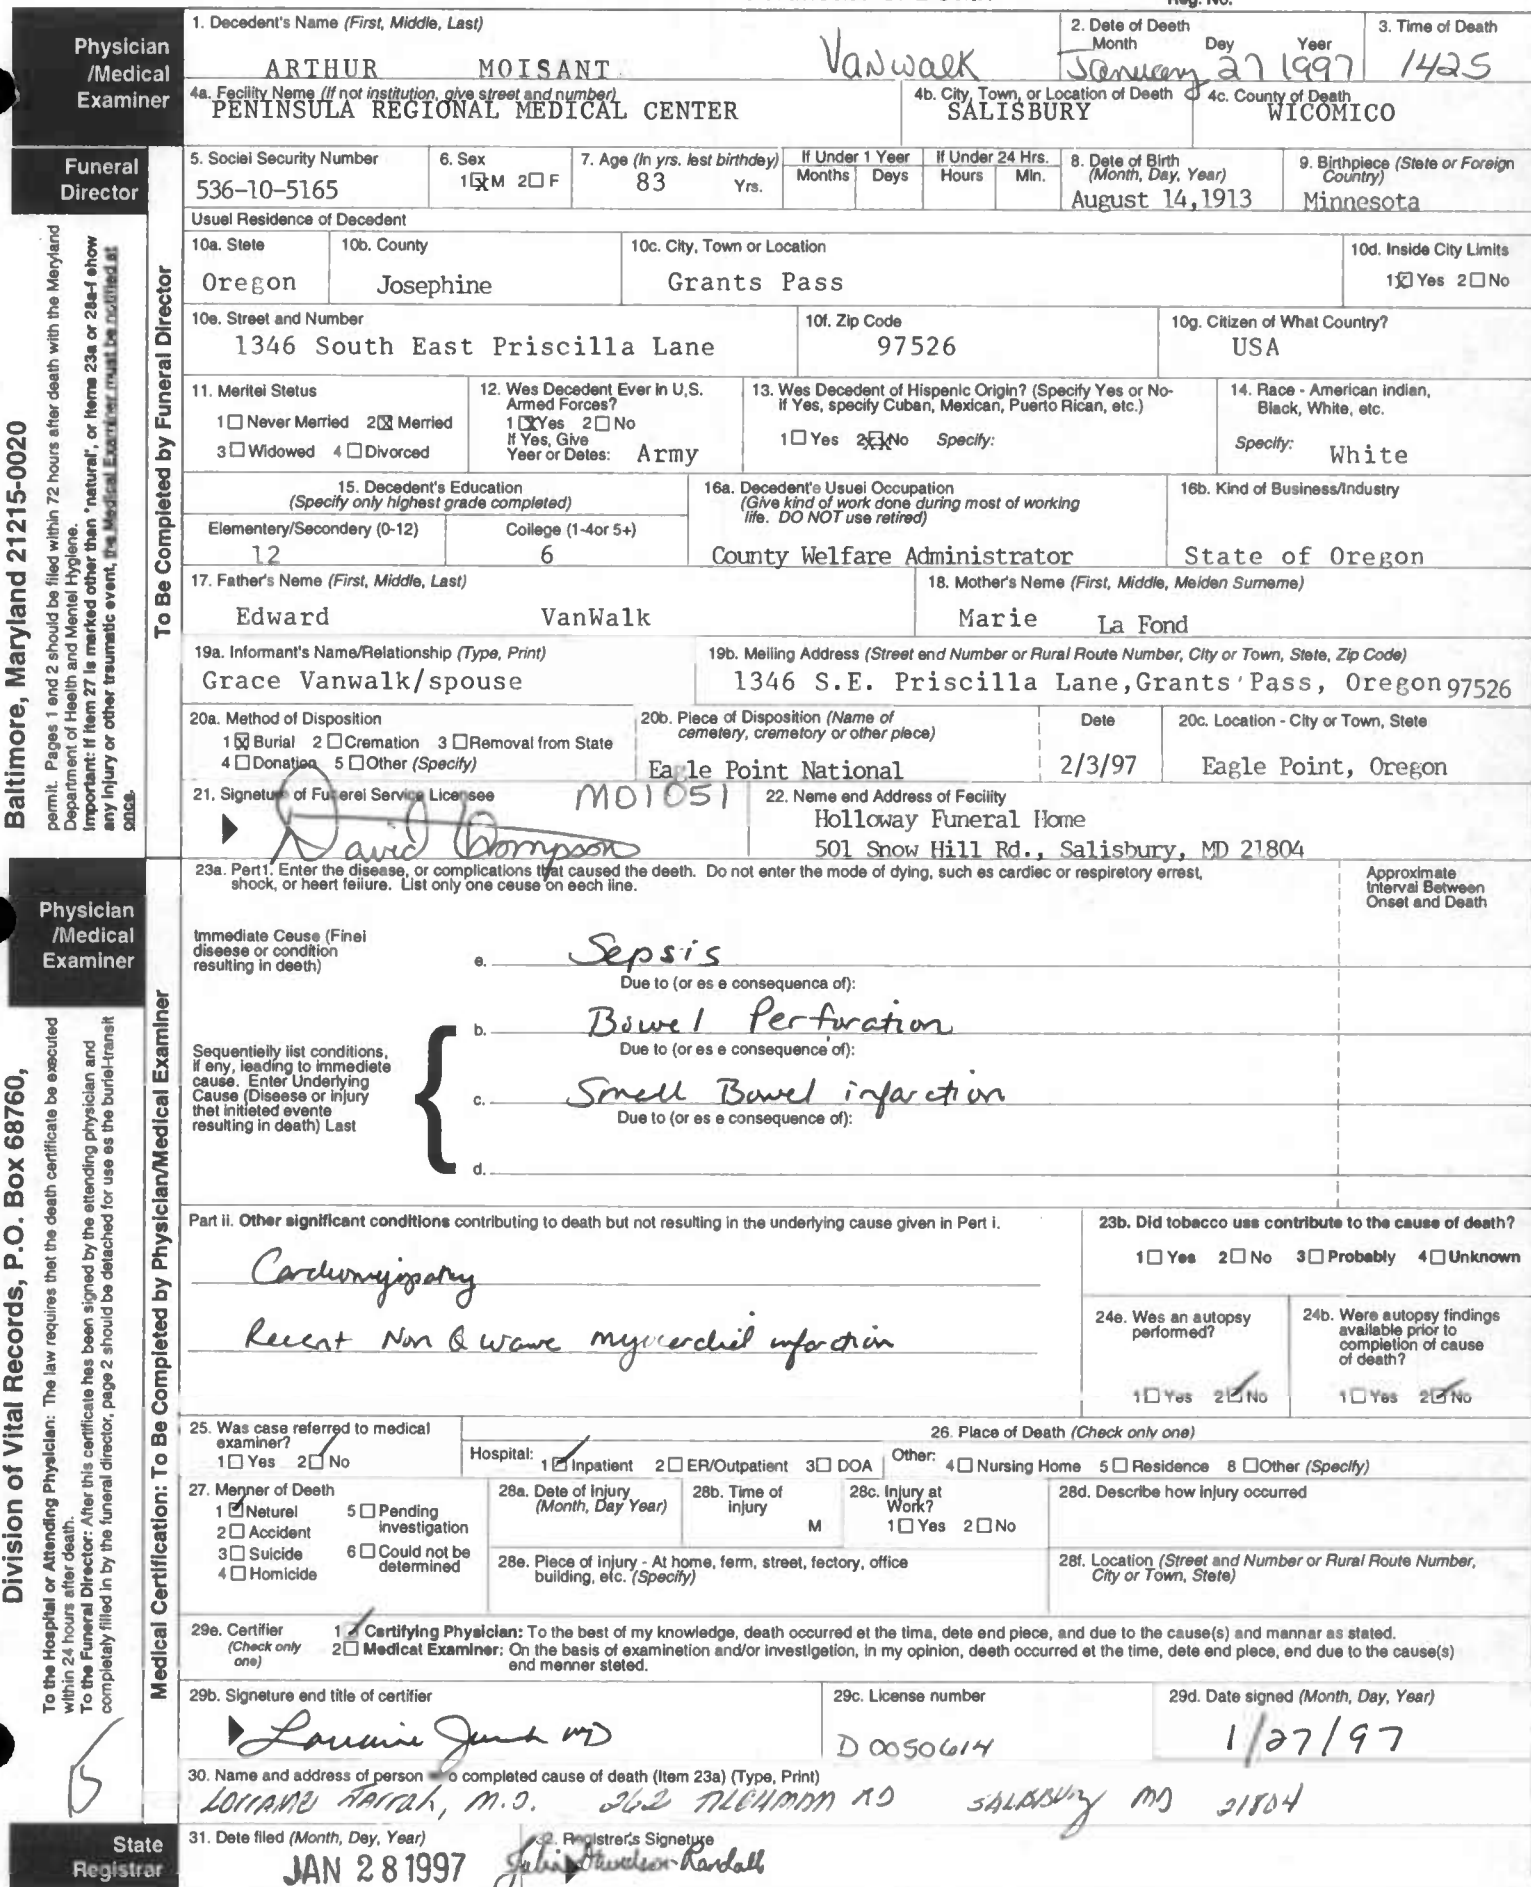 Physician
/Medical
Examiner
1. Decedent's Name (First, Middle, Last)
ARTHUR MOISANT Vanwalk
2. Date of Death
Month Day Year
January 27 1997
3. Time of Death
1425
4a. Facility Name (If not institution, give street and number)
PENINSULA REGIONAL MEDICAL CENTER
4b. City, Town, or Location of Death
SALISBURY
4c. County of Death
WICOMICO
Funeral
Director
5. Social Security Number
536-10-5165
6. Sex
1☒M 2☐F
7. Age (In yrs. last birthday)
83 Yrs.
If Under 1 Year
Months Days
If Under 24 Hrs.
Hours Min.
8. Date of Birth
(Month, Day, Year)
August 14,1913
9. Birthplace (State or Foreign
Country)
Minnesota
Usual Residence of Decedent
10a. State
Oregon
10b. County
Josephine
10c. City, Town or Location
Grants Pass
10d. Inside City Limits
1☒Yes 2☐No
10e. Street and Number
1346 South East Priscilla Lane
10f. Zip Code
97526
10g. Citizen of What Country?
USA
11. Marital Status
1☐Never Married 2☒Married
3☐Widowed 4☐Divorced
12. Was Decedent Ever in U.S.
Armed Forces?
1☒Yes 2☐No
If Yes, Give
Year or Dates: Army
13. Was Decedent of Hispanic Origin? (Specify Yes or No-
if Yes, specify Cuban, Mexican, Puerto Rican, etc.)
1☐Yes 2☒No Specify:
14. Race - American Indian,
Black, White, etc.
Specify: White
15. Decedent's Education
(Specify only highest grade completed)
Elementary/Secondary (0-12)
12
College (1-4or 5+)
6
16a. Decedent's Usual Occupation
(Give kind of work done during most of working
life. DO NOT use retired)
County Welfare Administrator
16b. Kind of Business/Industry
State of Oregon
17. Father's Name (First, Middle, Last)
Edward VanWalk
18. Mother's Name (First, Middle, Maiden Surname)
Marie La Fond
19a. Informant's Name/Relationship (Type, Print)
Grace Vanwalk/spouse
19b. Mailing Address (Street and Number or Rural Route Number, City or Town, State, Zip Code)
1346 S.E. Priscilla Lane,Grants Pass, Oregon 97526
20a. Method of Disposition
1☒Burial 2☐Cremation 3☐Removal from State
4☐Donation 5☐Other (Specify)
20b. Place of Disposition (Name of
cemetery, crematory or other place)
Eagle Point National
Date
2/3/97
20c. Location - City or Town, State
Eagle Point, Oregon
21. Signature of Funeral Service Licensee
MD1051
David Thompson
22. Name and Address of Facility
Holloway Funeral Home
501 Snow Hill Rd., Salisbury, MD 21804
To Be Completed by Funeral Director
Baltimore, Maryland 21215-0020
permit. Pages 1 and 2 should be filed within 72 hours after death with the Maryland
Department of Health and Mental Hygiene.
Important: If item 27 is marked other than "natural", or items 23a or 28a-f show
any injury or other traumatic event, the Medical Examiner must be notified at
once.
Physician
/Medical
Examiner
23a. Part1. Enter the disease, or complications that caused the death. Do not enter the mode of dying, such as cardiac or respiratory arrest,
shock, or heart failure. List only one cause on each line.
Approximate
Interval Between
Onset and Death
Immediate Cause (Final
disease or condition
resulting in death)
a. Sepsis
Due to (or as a consequence of):
b. Bowel Perforation
Due to (or as a consequence of):
Sequentially list conditions,
if any, leading to immediate
cause. Enter Underlying
Cause (Disease or injury
that initiated events
resulting in death) Last
c. Small Bowel infarction
Due to (or as a consequence of):
d.
Part ii. Other significant conditions contributing to death but not resulting in the underlying cause given in Part i.
Cardiomyopathy
Recent Non Q wave myocardial infarction
23b. Did tobacco use contribute to the cause of death?
1☐Yes 2☐No 3☐Probably 4☐Unknown
24a. Was an autopsy
performed?
1☐Yes 2☑No
24b. Were autopsy findings
available prior to
completion of cause
of death?
1☐Yes 2☑No
25. Was case referred to medical
examiner?
1☐Yes 2☑No
26. Place of Death (Check only one)
Hospital: 1☑Inpatient 2☐ER/Outpatient 3☐DOA Other: 4☐Nursing Home 5☐Residence 8☐Other (Specify)
27. Manner of Death
1☑Natural 5☐Pending
investigation
2☐Accident
3☐Suicide 6☐Could not be
determined
4☐Homicide
28a. Date of injury
(Month, Day Year)
28b. Time of
injury
M
28c. Injury at
Work?
1☐Yes 2☐No
28d. Describe how injury occurred
28e. Place of injury - At home, farm, street, factory, office
building, etc. (Specify)
28f. Location (Street and Number or Rural Route Number,
City or Town, State)
29a. Certifier
(Check only
one)
1☑Certifying Physician: To the best of my knowledge, death occurred at the time, date and place, and due to the cause(s) and manner as stated.
2☐Medical Examiner: On the basis of examination and/or investigation, in my opinion, death occurred at the time, date and place, and due to the cause(s)
and manner stated.
29b. Signature and title of certifier
Lorraine MD
29c. License number
D0050614
29d. Date signed (Month, Day, Year)
1/27/97
30. Name and address of person o completed cause of death (Item 23a) (Type, Print)
Lorraine Jarrah, M.D. 262 TILGHMAN RD SALISBURY MD 21804
Medical Certification: To Be Completed by Physician/Medical Examiner
Division of Vital Records, P.O. Box 68760,
To the Hospital or Attending Physician: The law requires that the death certificate be executed
within 24 hours after death.
To the Funeral Director: After this certificate has been signed by the attending physician and
completely filled in by the funeral director, page 2 should be detached for use as the burial-transit
State
Registrar
31. Date filed (Month, Day, Year)
JAN 28 1997
32. Registrar's Signature
Julia Davidson-Randall